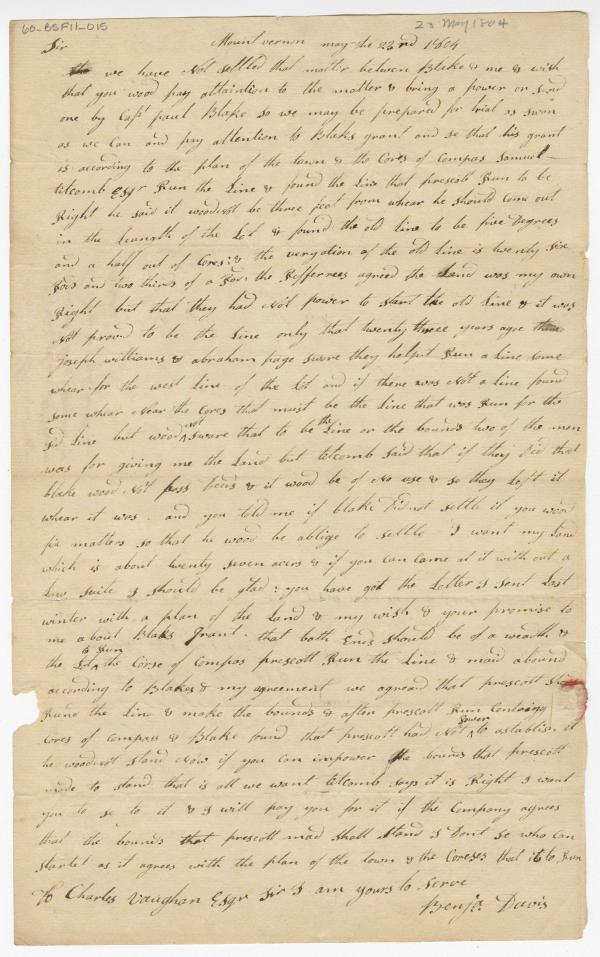 60-BSF11-015
23 May 1804
Mount vernon may the 23rd 1804
Sir
we have Not settled that matter betwen Blake & me & wish
that you wood pay attaintion to the matter & bring a power or send
one by Capt paul Blake so we may be prepared for trial as swon
as we Can and pay attention to Blaks grant and se that his grant
is according to the plan of the town & the Cores of Compas Samuel
titcomb Esqr Run the Line & found the Line that prescott Run to be
Right he said it woodnot be three feet from whear he should come out
in the Leangth of the Lot & found the old line to be five Degrees
and a half out of Cores: & the veryation of the old Line is twenty six
Rods and two thirds of a Rod: the Refferrees agreed the Land was my own
Right but that they had Not power to start the old Line & it was
Not proved to be the Line only that twenty three years agre
joseph williams & abraham page swore they helpt Run a Line some
whear for the west Line of the Lot and if there was Not a Line found
some whear Near the Cores that must be the Line that was Run for the
sd Line but wood Not sware that to be the Line or the bounds two of the men
was for giving me the Land but titcomb said that if they Did that
blake wood Not heurs & it wood be of No use & so they Left it
whear it was. and you told me if blake Did not settle it you wood
fix matters so that he wood be ablige to settle I want my Land
which is about twenty seven acers & if you can Came at it with out a
Law suite I should be glad: you have got the Letter I sent Last
winter with a plan of the Land & my wish & your promise to
me about Blaks grant. that both Ends should be of a weadth &
the Lot to Run the Corse of Compas prescott Run the Line & maid abound
according to Blakes & my agreement we agread that prescott should
Rund the Line & make the bounds & after prescott Run
Cores of Compass & Blake found that prescott had Not power to astablish it
he woodnot stand Now if you can impower the bounds that prescott
made to stand that is all we want titcomb says it is Right I want
you to se to it & I will pay you for it if the Company agrees
that the bounds that prescott mad shall stand I Dont se who can
startet as it agrees with the plan of the town & the Coreses that it is to Run
To Charles Vaughan Esqr Sir I am yours to Serve
Benja Davis